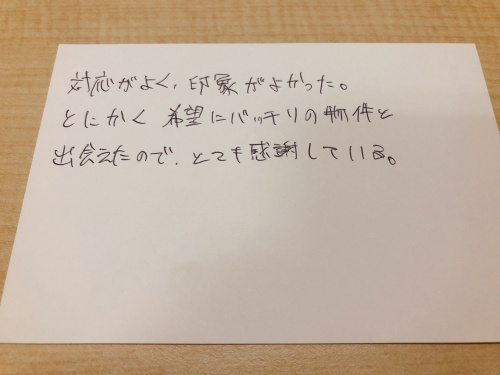 対応がよく、印象がよかった。
とにかく希望にバッチリの物件と
出会えたので、とても感謝している。